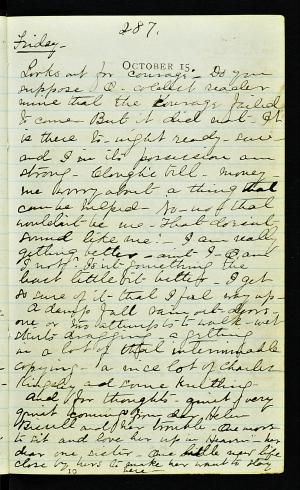 287.
Friday –
OCTOBER 15.
Looks out for courage – Do you
suppose O. coldest reader
mine that the courage failed
to come – But it did not – It
is there to-night ready – sure
and I in its possession am
strong – Clough's bill – money –
me worry about a thing that
can be helped – No – no that
wouldn't be me – That doesn't
sound like me! – I am really
getting better – aint I – O am
I not? Isn't something the
least little bit better – I get
so sure of it – that I
A damp fall rainy out-doors –
one or two attempts to walk – wet
skirts dragging – a getting
in a lot of that interminable
copying – a nice lot of Charles
Kingsley and some knitting –
And for thoughts – quiet very
quiet coming from dear Helen
and her trouble – One more
to sit and love her up in Heaven – her
dear one, sister – One little more life
close by hers to make her want to stay
here –